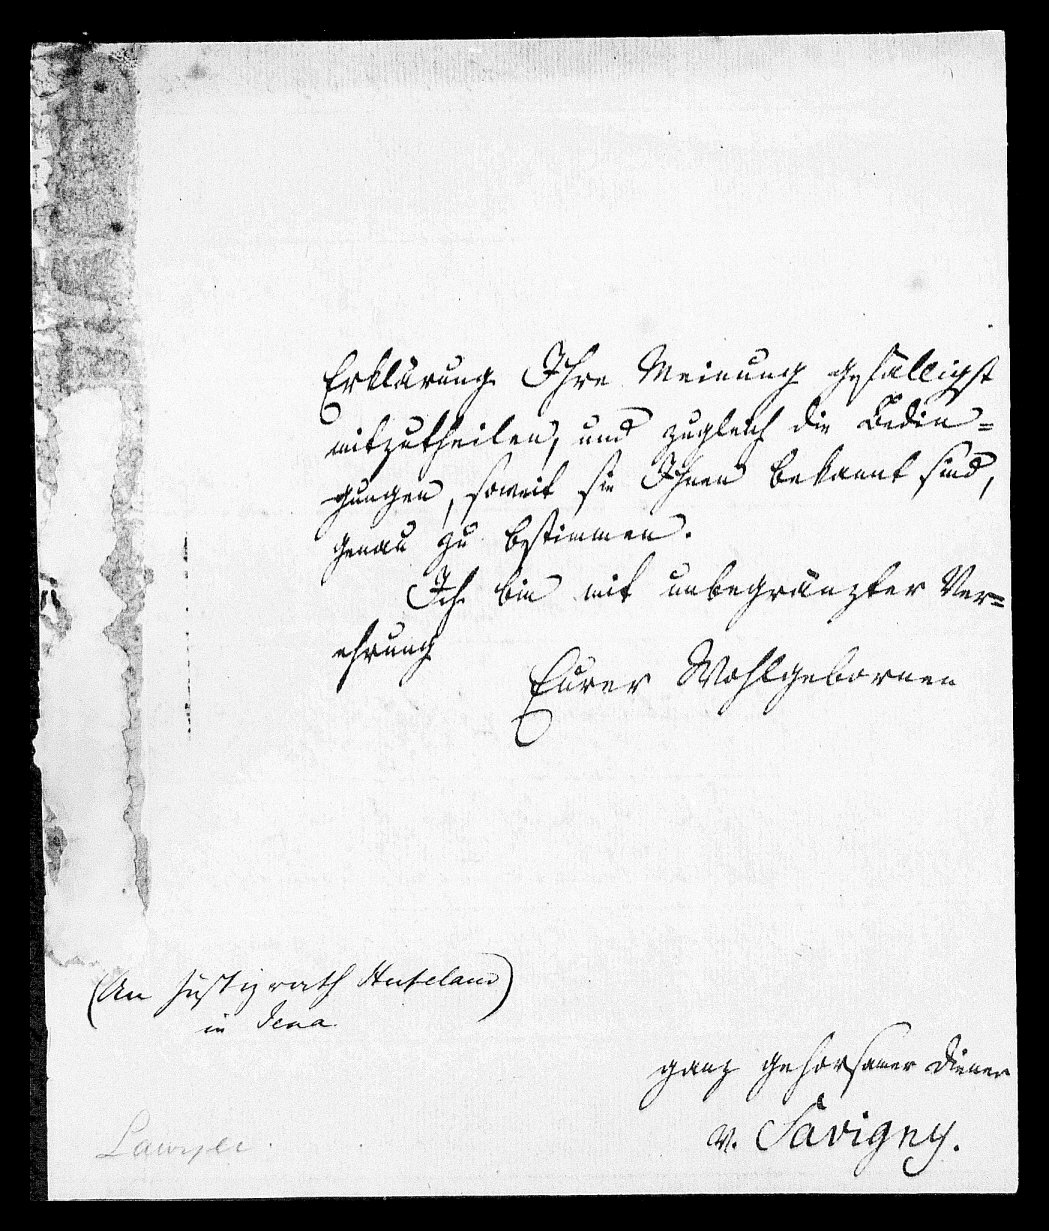 Erklärung Ihre Meinung gefälligst
mitzutheilen, und zugleich die Bedin=
gungen, soweit sie Ihnen bekannt sind,
genau zu bestimmen.
Ich bin mit unbegränzter Ver=
ehrung
Eurer Wohlgebornen
(An Justizrath Hufeland)
in Jena.
ganz gehorsamer Diener
v. Savigny.
Lawyer.